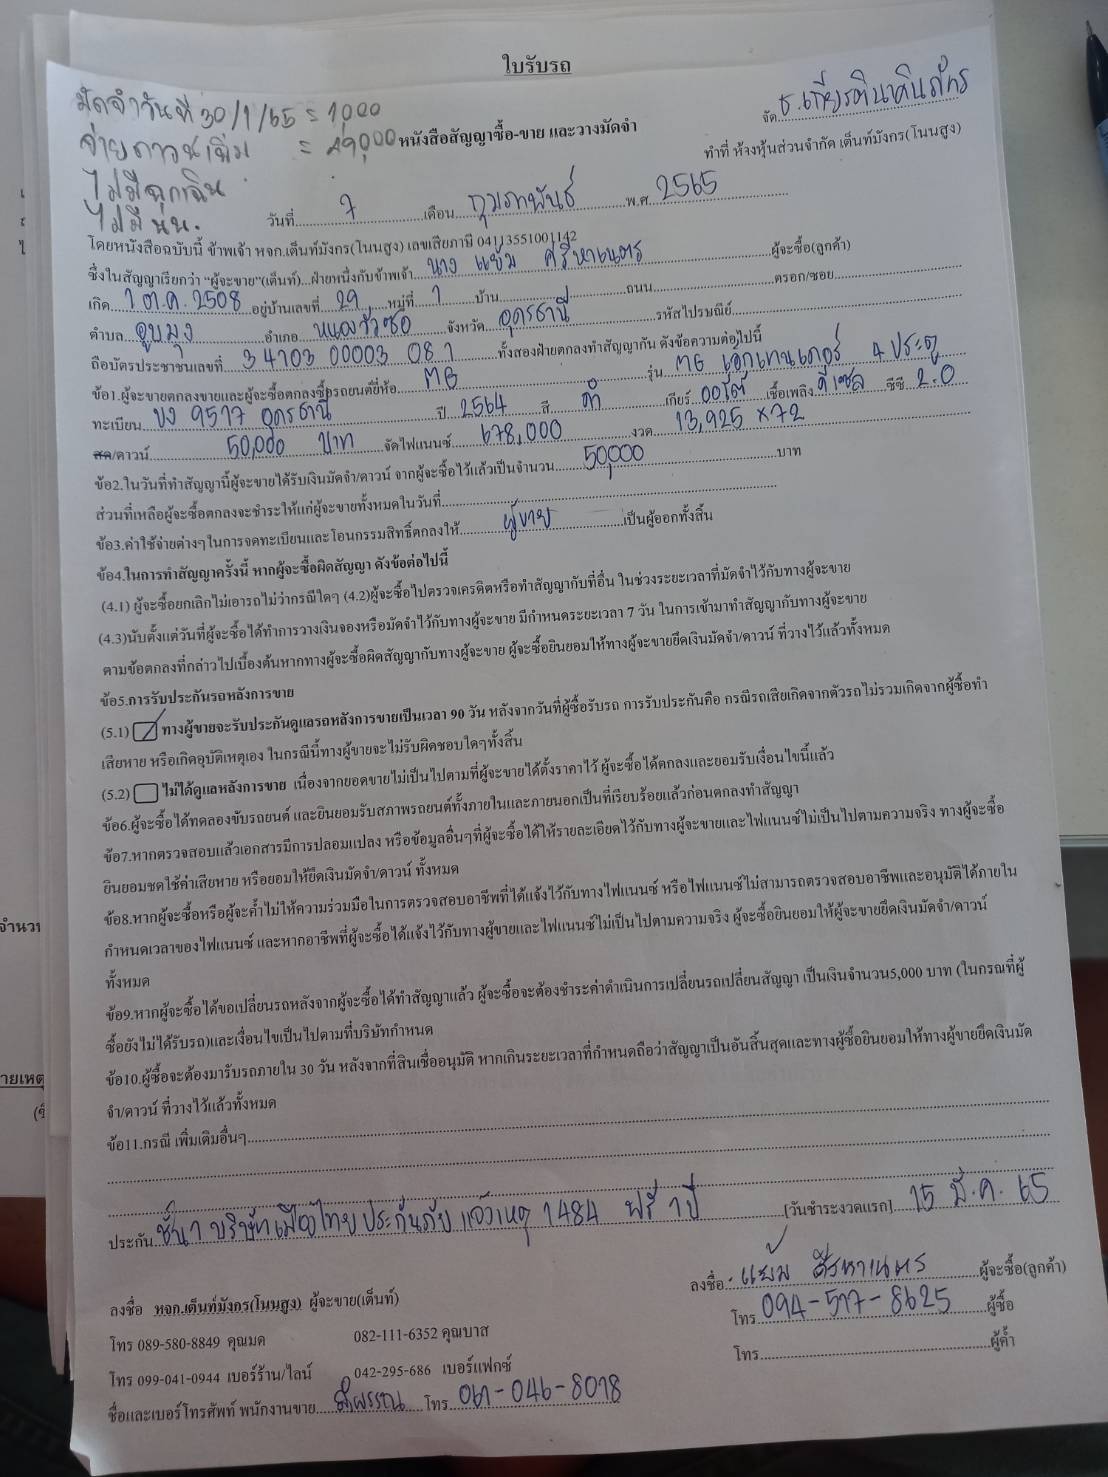 ใบรับรถ
มัดจำวันที่ 30/1/65 = 1000
จัด ธ.เกียรตินาคินภัทร
จ่ายดาวน์เพิ่ม = 49,000
หนังสือสัญญาซื้อ-ขาย และวางมัดจำ
ทำที่ ห้างหุ้นส่วนจำกัด เต็นท์มังกร(โนนสูง)
ไม่มีฉุกเฉิน
ไม่มี
วันที่ 7 เดือน กุมภาพันธ์ พ.ศ. 2565
โดยหนังสือฉบับนี้ ข้าพเจ้า หจก.เต็นท์มังกร(โนนสูง) เลขเสียภาษี 04113551001142
ซึ่งในสัญญาเรียกว่า “ผู้จะขาย”(เต็นท์)...ฝ่ายหนึ่งกับข้าพเจ้า นาง แย้ม ศรีหาเนตร ผู้จะซื้อ(ลูกค้า)
เกิด 1 ต.ค. 2508 อยู่บ้านเลขที่ 29 หมู่ที่ 1 บ้าน ถนน ตรอก/ซอย
ตำบล อูบมุง อำเภอ หนองวัวซอ จังหวัด อุดรธานี รหัสไปรษณีย์
ถือบัตรประชาชนเลขที่ 3 4103 00003 08 1 ทั้งสองฝ่ายตกลงทำสัญญากัน ดังข้อความต่อไปนี้
ข้อ1.ผู้จะขายตกลงขายและผู้จะซื้อตกลงซื้อรถยนต์ยี่ห้อ MG รุ่น MG เอ็กเทนเดอร์ 4 ประตู
ทะเบียน บง 9517 อุดรธานี ปี 2564 สี ดำ เกียร์ ออโต้ เชื้อเพลิง ดีเซล ซีซี 2.0
สด/ดาวน์ 50,000 บาท จัดไฟแนนซ์ 678,000 งวด 13,925 x 72
ข้อ2.ในวันที่ทำสัญญานี้ผู้จะขายได้รับเงินมัดจำ/ดาวน์ จากผู้จะซื้อไว้แล้วเป็นจำนวน 50,000 บาท
ส่วนที่เหลือผู้จะซื้อตกลงจะชำระให้แก่ผู้จะขายทั้งหมดในวันที่
ข้อ3.ค่าใช้จ่ายต่างๆในการจดทะเบียนและโอนกรรมสิทธิ์ตกลงให้ ผู้ขาย เป็นผู้ออกทั้งสิ้น
ข้อ4.ในการทำสัญญาครั้งนี้ หากผู้จะซื้อผิดสัญญา ดังข้อต่อไปนี้
(4.1) ผู้จะซื้อยกเลิกไม่เอารถไม่ว่ากรณีใดๆ (4.2)ผู้จะซื้อไปตรวจเครดิตหรือทำสัญญากับที่อื่น ในช่วงระยะเวลาที่มัดจำไว้กับทางผู้จะขาย
(4.3)นับตั้งแต่วันที่ผู้จะซื้อได้ทำการวางเงินจองหรือมัดจำไว้กับทางผู้จะขาย มีกำหนดระยะเวลา 7 วัน ในการเข้ามาทำสัญญากับทางผู้จะขาย
ตามข้อตกลงที่กล่าวไปเบื้องต้นหากทางผู้จะซื้อผิดสัญญากับทางผู้จะขาย ผู้จะซื้อยินยอมให้ทางผู้จะขายยึดเงินมัดจำ/ดาวน์ ที่วางไว้แล้วทั้งหมด
ข้อ5.การรับประกันรถหลังการขาย
(5.1) ทางผู้ขายจะรับประกันดูแลรถหลังการขายเป็นเวลา 90 วัน หลังจากวันที่ผู้ซื้อรับรถ การรับประกันคือ กรณีรถเสียเกิดจากตัวรถ ไม่รวมเกิดจากผู้ซื้อทำ
เสียหาย หรือเกิดอุบัติเหตุเอง ในกรณีนี้ทางผู้ขายจะไม่รับผิดชอบใดๆทั้งสิ้น
(5.2) ไม่ได้ดูแลหลังการขาย เนื่องจากยอดขายไม่เป็นไปตามที่ผู้จะขายได้ตั้งราคาไว้ ผู้จะซื้อได้ตกลงและยอมรับเงื่อนไขนี้แล้ว
ข้อ6.ผู้จะซื้อได้ทดลองขับรถยนต์ และยินยอมรับสภาพรถยนต์ทั้งภายในและภายนอกเป็นที่เรียบร้อยแล้วก่อนตกลงทำสัญญา
ข้อ7.หากตรวจสอบแล้วเอกสารมีการปลอมแปลง หรือข้อมูลอื่นๆที่ผู้จะซื้อได้ให้รายละเอียดไว้กับทางผู้จะขายและไฟแนนซ์ไม่เป็นไปตามความจริง ทางผู้จะซื้อ
ยินยอมชดใช้ค่าเสียหาย หรือยอมให้ยึดเงินมัดจำ/ดาวน์ ทั้งหมด
ข้อ8.หากผู้จะซื้อหรือผู้จะค้ำไม่ให้ความร่วมมือในการตรวจสอบอาชีพที่ได้แจ้งไว้กับทางไฟแนนซ์ หรือไฟแนนซ์ไม่สามารถตรวจสอบอาชีพและอนุมัติได้ภายใน
กำหนดเวลาของไฟแนนซ์ และหากอาชีพที่ผู้จะซื้อได้แจ้งไว้กับทางผู้ขายและไฟแนนซ์ไม่เป็นไปตามความจริง ผู้จะซื้อยินยอมให้ผู้จะขายยึดเงินมัดจำ/ดาวน์
ทั้งหมด
ข้อ9.หากผู้จะซื้อได้ขอเปลี่ยนรถหลังจากผู้จะซื้อได้ทำสัญญาแล้ว ผู้จะซื้อจะต้องชำระค่าดำเนินการเปลี่ยนรถเปลี่ยนสัญญา เป็นเงินจำนวน5,000 บาท (ในกรณีที่ผู้
ซื้อยังไม่ได้รับรถ)และเงื่อนไขเป็นไปตามที่บริษัทกำหนด
ข้อ10.ผู้ซื้อจะต้องมารับรถภายใน 30 วัน หลังจากที่สินเชื่ออนุมัติ หากเกินระยะเวลาที่กำหนดถือว่าสัญญาเป็นอันสิ้นสุดและทางผู้ซื้อยินยอมให้ทางผู้ขายยึดเงินมัด
จำ/ดาวน์ ที่วางไว้แล้วทั้งหมด
ข้อ11.กรณี เพิ่มเติมอื่นๆ
ประกัน ชั้น 1 บริษัทเมืองไทยประกันภัย แจ้งเหตุ 1484 ฟรี 1 ปี [วันชำระงวดแรก] 15 มี.ค. 65
ลงชื่อ หจก.เต็นท์มังกร(โนนสูง) ผู้จะขาย(เต็นท์)
ลงชื่อ แย้ม ศรีหาเนตร ผู้จะซื้อ(ลูกค้า)
โทร 089-580-8849 คุณมด 082-111-6352 คุณบาส
โทร 094-517-8625 ผู้ซื้อ
โทร 099-041-0944 เบอร์ร้าน/ไลน์ 042-295-686 เบอร์แฟกซ์
โทร ผู้ค้ำ
ชื่อและเบอร์โทรศัพท์ พนักงานขาย โทร 061-046-8018